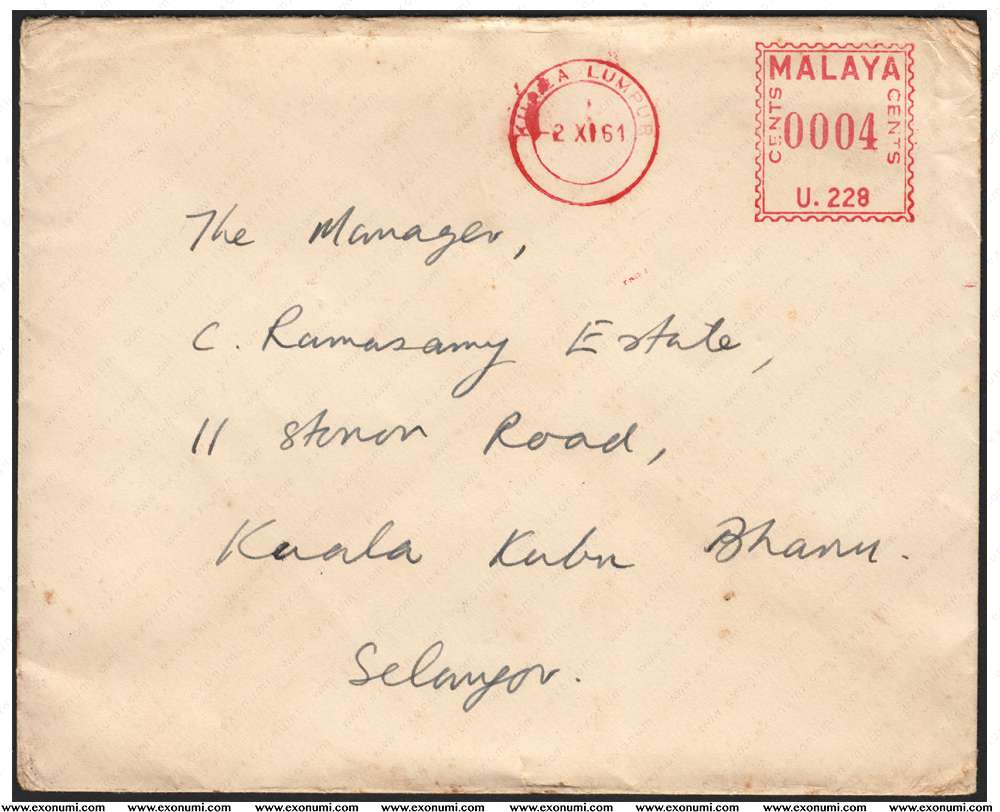 KUALA LUMPUR
-2 XI 61
MALAYA
CENTS 0004 CENTS
U. 228
The Manager,
C. Ramasamy Estate,
11 Stonor Road,
Kuala Kubu Bharu.
Selangor.
www.exonumi.com www.exonumi.com www.exonumi.com www.exonumi.com www.exonumi.com www.exonumi.com www.exonumi.com www.exonumi.com